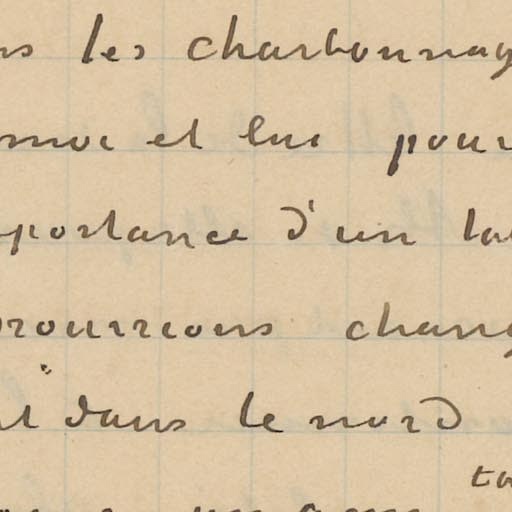 ns les charbonnag
moi et lui pour
portance d'un ta
rourrions chang
t dans le nord
to